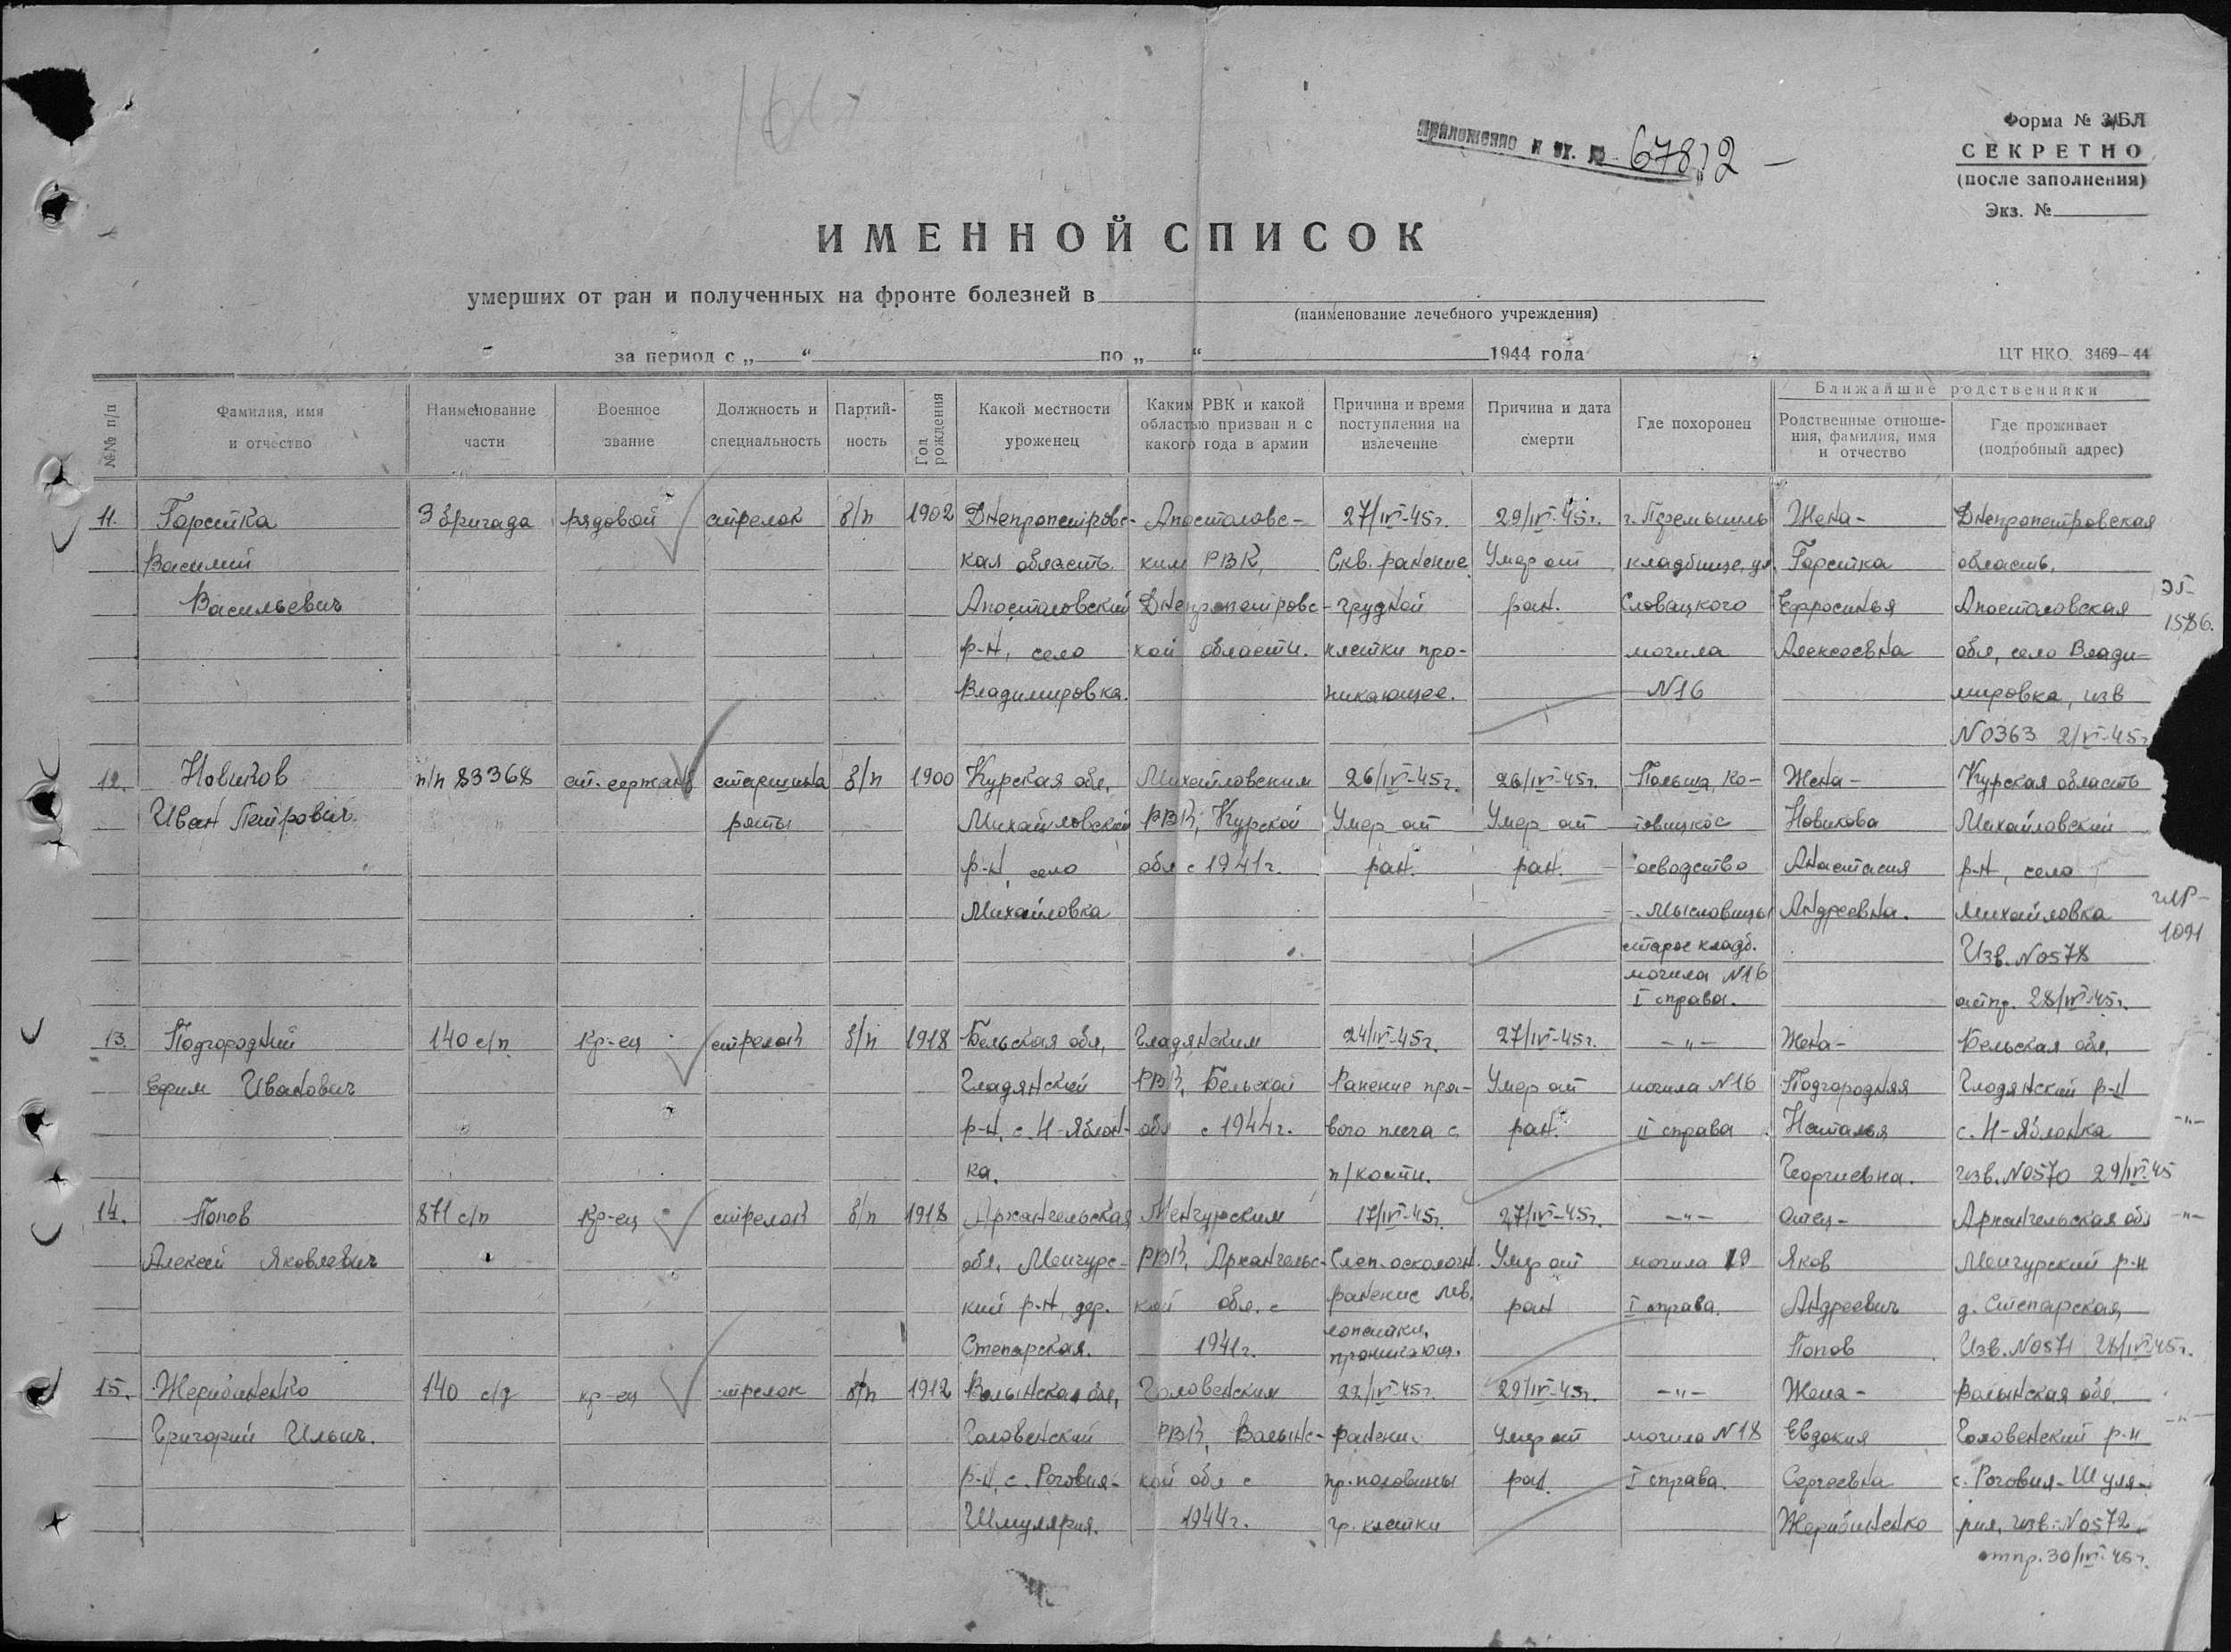 Приложение к вх. № 67812
Форма № 3/БЛ
СЕКРЕТНО
(после заполнения)
Экз. №
ИМЕННОЙ СПИСОК
умерших от ран и полученных на фронте болезней в
(наименование лечебного учреждения)
за период с „ “ по „ “ 1944 года
ЦТ НКО. 3469—44
№№ п/п
Фамилия, имя
и отчество
Наименование
части
Военное
звание
Должность и
специальность
Партий-
ность
Год
рождения
Какой местности
уроженец
Каким РВК и какой
областью призван и с
какого года в армии
Причина и время
поступления на
излечение
Причина и дата
смерти
Где похоронен
Ближайшие родственники
Родственные отноше-
ния, фамилия, имя
и отчество
Где проживает
(подробный адрес)
11. Горситка 3 бригада рядовой стрелок б/п 1902 Днепропетровс- Апостоловс- 27/IV-45г. 29/IV-45г. г. Перемышль Жена- Днепропетровская
Василий кая область. ким РВК, Скв. ранение Умер от кладбище, ул. Горситка область,
Васильевич Апостоловский Днепропетровс- грудной ран. Словацкого Ефросинья Апостоловская
р-н, село кой области. клетки про- могила Алексеевна обл, село Влади-
Владимировка. никающее. №16 мировка, изв
№0363 2/VI-45г
1586.
12. Новиков п/п 83368 ст. сержант старшина б/п 1900 Курская обл, Михайловским 26/IV-45г. 26/IV-45г. Польша, Ко- Жена- Курская область
Иван Петрович роты Михайловский РВК, Курской Умер от Умер от товицкое Новикова Михайловский
р-н, село обл с 1941г. ран. ран. -оеводство Анастасия р-н, село
Михайловка -. Мысловицы Андреевна. Михайловка
старое кладб. Изв. №0578
могила №16
I справа. отпр. 28/IV-45г.
1091
13. Подгородний 140 с/п Кр-ец стрелок б/п 1918 Бельская обл, Глодянским 24/IV-45г. 27/IV-45г. -„- Жена- Бельская обл,
Ефим Иванович Глодянский РВК, Бельской Ранение пра- Умер от могила №16 Подгородняя Глодянский р-н
р-н, с. Н-Яблон- обл с 1944г. вого плеча с ран. II справа Наталья с. Н-Яблонка -„-
ка. п/кости. Георгиевна. изв. №0570 29/IV-45
14. Попов 871 с/п Кр-ец стрелок б/п 1918 Архангельская Менгурским 17/IV-45г. 27/IV-45г. -„- Отец- Архангельская обл -„-
Алексей Яковлевич обл, Менгурс- РВК, Архангельс- Слеп. осколочн. Умер от могила 19 Яков Менгурский р-н
кий р-н, дер. кой обл. с ранение лев. ран I справа. Андреевич д. Степарская,
Степарская. 1941г. лопатки, Попов Изв. №0571 28/IV-45г.
проникающ.
15. Жерибиненко 140 с/д кр-ец стрелок б/п 1912 Волынская обл, Головенским 22/IV-45г. 29/IV-45г. -„- Жена- Волынская обл.
Григорий Ильич. Головенский РВК, Волынс- ранение Умер от могила №18 Евдокия Головенский р-н -„-
р-н, с. Роговия- кой обл с пр. половины ран. I справа. Сергеевна с. Роговия-Шуля-
Шмулярия. 1944г. гр. клетки Жерибиненко рия, изв. №0572
отпр. 30/IV-45г.